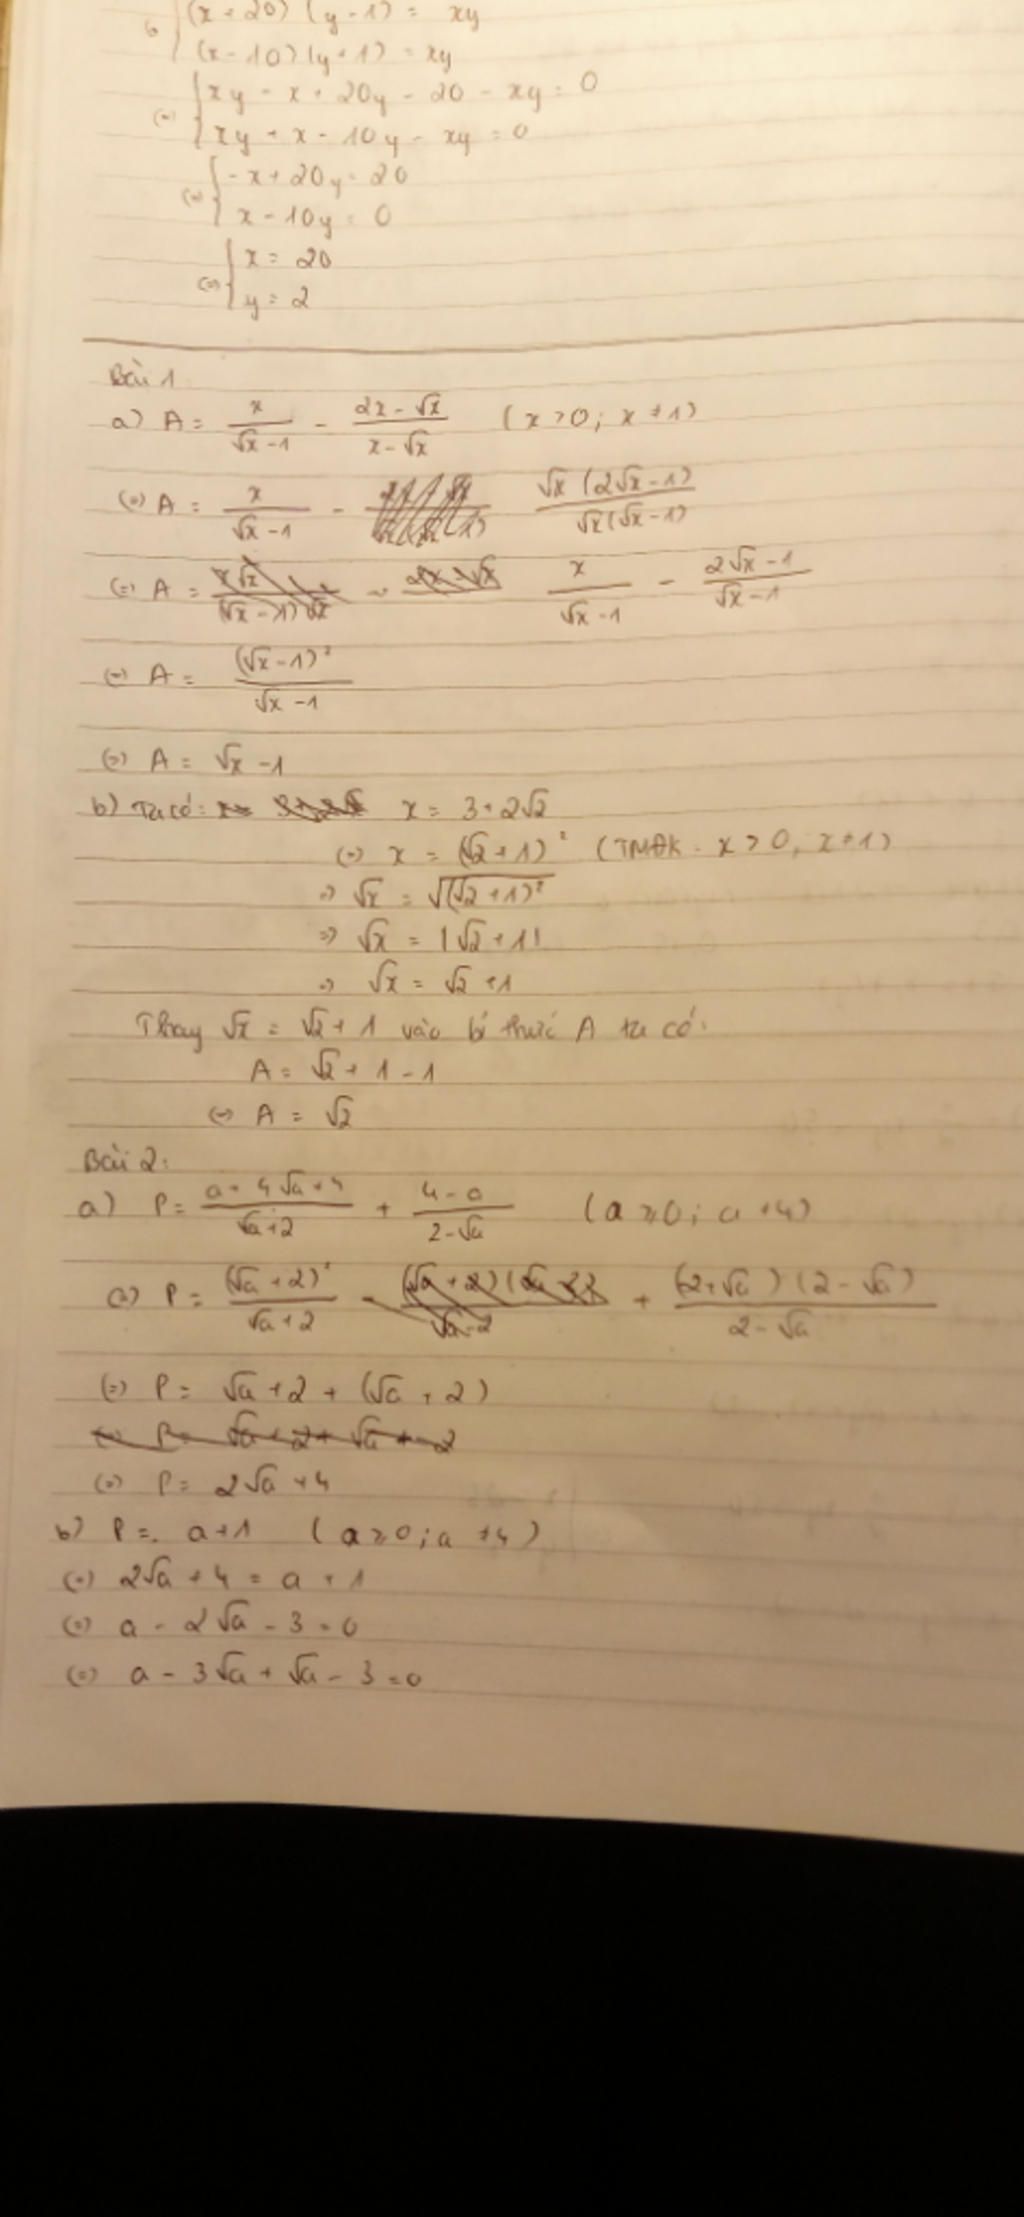 b { (x + 20) (y - 1) = xy
(x - 10) (y + 1) = xy
(=) { xy - x + 20y - 20 - xy = 0
xy + x - 10y - xy = 0
(=) { -x + 20y = 20
x - 10y = 0
(=) { x = 20
y = 2
Bài 1
a) A = x/(√x - 1) - (2x - √x)/(x - √x) (x > 0; x ≠ 1)
(=) A = x/(√x - 1) - √x(2√x - 1)/(√x(√x - 1))
(=) A = x/(√x - 1) - (2√x - 1)/(√x - 1)
(=) A = (√x - 1)²/(√x - 1)
(=) A = √x - 1
b) Ta có: x = 3 + 2√2
(=) x = (√2 + 1)² (TMĐK: x > 0, x ≠ 1)
=) √x = √((√2 + 1)²)
=) √x = |√2 + 1|
=) √x = √2 + 1
Thay √x = √2 + 1 vào bt thức A ta có:
A = √2 + 1 - 1
(=) A = √2
Bài 2:
a) P = (a + 4√a + 4)/(√a + 2) + (4 - a)/(2 - √a) (a ≥ 0; a ≠ 4)
(=) P = (√a + 2)²/(√a + 2) + (2 + √a)(2 - √a)/(2 - √a)
(=) P = √a + 2 + (√a + 2)
(=) P = 2√a + 4
b) P = a + 1 (a ≥ 0; a ≠ 4)
(=) 2√a + 4 = a + 1
(=) a - 2√a - 3 = 0
(=) a - 3√a + √a - 3 = 0